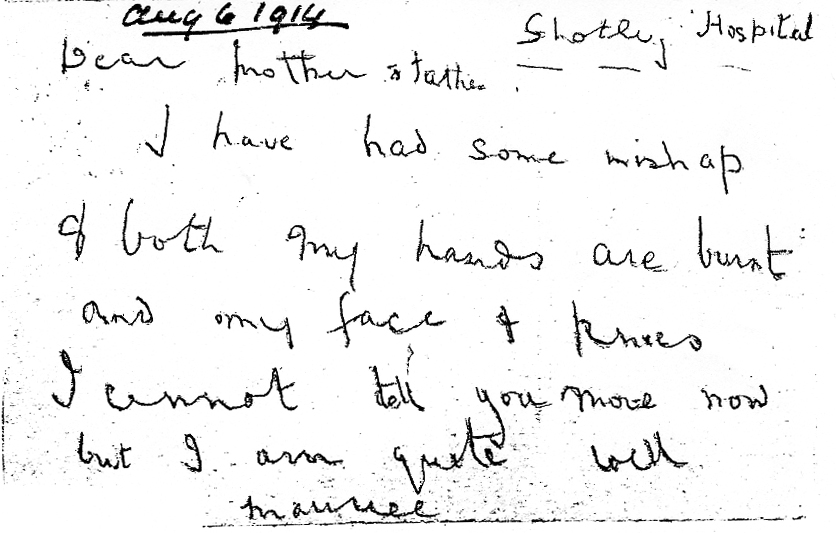 Aug 6 1914
Shotley Hospital
Dear Mother & Father.
I have had some mishap
& both my hands are burnt
and my face & knees
I cannot tell you more now
but I am quite well
Maurice